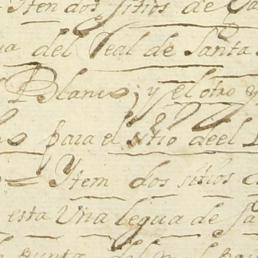 Ytem dos sitios de
del Real de Santa
Blanco; y el otro y
para el sitio de el
Ytem dos sitios
esta Una legua de
punta del Real